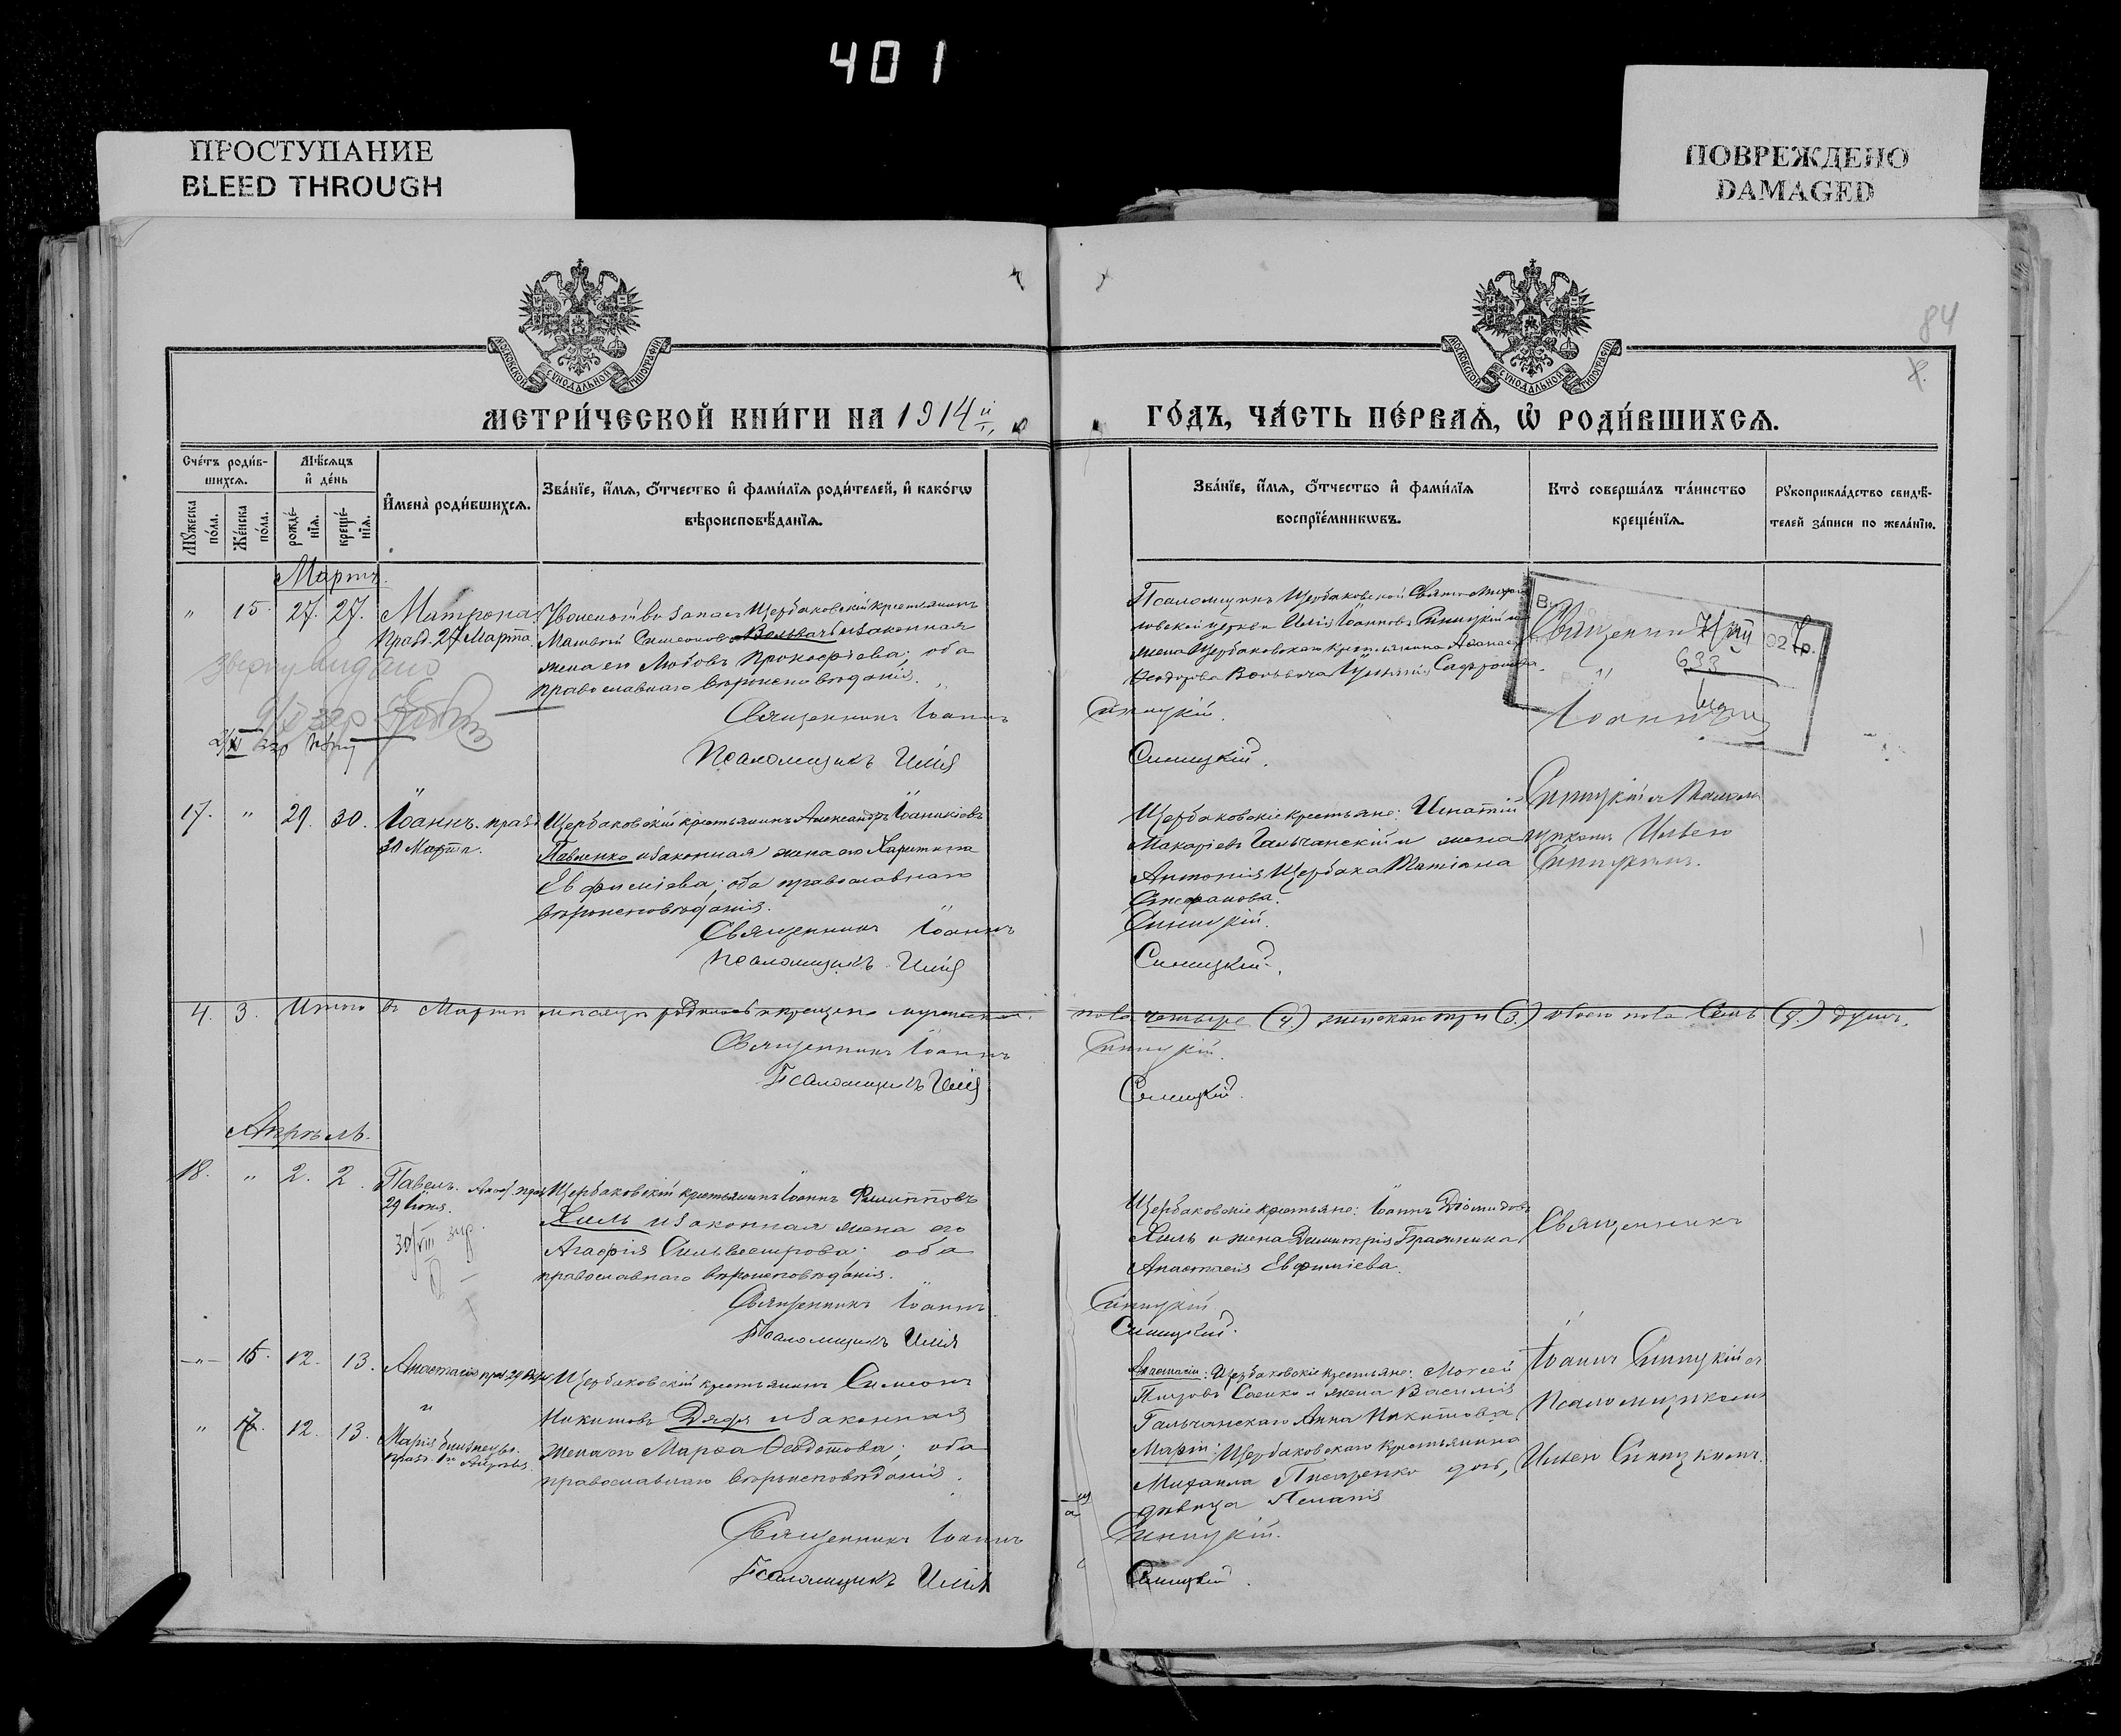 401
ПРОСТУПАНИЕ
BLEED THROUGH
ПОВРЕЖДЕНО
DAMAGED
84
МОСКОВСКОЙ СѴНОДАЛЬНОЙ ТИПОГРАФІИ
МОСКОВСКОЙ СѴНОДАЛЬНОЙ ТИПОГРАФІИ
МЕТРИ́ЧЕСКОЙ КНИ́ГИ НА 1914й
ГО́ДЪ, ЧА́СТЬ ПЕ́РВАѦ, Ѡ҆ РОДИ́ВШИХСѦ.
Сче́тъ роди́в-
шихсѧ.
Мѣ́сѧцъ
и҆ де́нь
Мꙋжеска
по́ла.
Же́нска
по́ла.
рожде́-
нїѧ.
креще́-
нїѧ.
И҆мена̀ роди́вшихсѧ.
Зва́нїе, и҆́мѧ, ѻ҆́тчество и҆ фами́лїѧ роди́телей, и҆ како́гѡ
вѣроисповѣ́данїѧ.
Зва́нїе, и҆́мѧ, ѻ҆́тчество и҆ фами́лїѧ
воспрїе́мникѡвъ.
Кто̀ соверша́лъ та́инство
креще́нїѧ.
Рꙋкоприкла́дство свидѣ́-
телей за́писи по жела́нїю.
Мартъ.
" 15 27. 27. Матрона
празд. 27 Марта
Уволенный въ запасъ Щербаковскій крестьянинъ
Матвей Симеоновъ Вольвачъ и законная
жена его Любовь Прокофіева; оба
православнаго вѣроисповѣданія.
Священникъ Іоаннъ
Псаломщикъ Илія
Псаломщикъ Щербаковской Свято-
церкви Илія Іоанновъ Синицкій и
жена Щербаковскаго крестьянина
Ѳеодорова Вольвача
Синицкій.
Синицкій.
Священник
633
Іоаннъ
17. " 29. 30. Іоаннъ. празд
30 Марта.
Щербаковскій крестьянинъ Александръ Іоанникіевъ
Павленко и законная жена его Харитина
Евфиміева; оба православнаго
вѣроисповѣданія.
Священникъ Іоаннъ
Псаломщикъ Илія
Щербаковскіе крестьяне: Игнатій
Макаріевъ Гальчанскій и жена
Антонія Щербака Татіана
Стефанова.
Синицкій.
Синицкій.
Синицкій и Псалом
щикомъ Ильею
Синицкимъ.
4. 3. Итого въ Мартѣ мѣсяцѣ родилось и крещено мужескаго
пола четыре (4.) женскаго три (3.) обоего пола Семь (7.) душъ.
Священникъ Іоаннъ
Псаломщикъ Илія
Синицкій.
Синицкій.
Апрѣль.
18. " 2. 2. Павелъ. Апос. празд
29 Іюня.
Щербаковскій крестьянинъ Іоаннъ Филипповъ
Хиль и законная жена его
Агафія Сильвестрова; оба
православнаго вѣроисповѣданія.
Священникъ Іоаннъ
Псаломщикъ Илія
Щербаковскіе крестьяне: Іоаннъ Діомидовъ
Хиль и жена Димитрія Бражника
Анастасія Евфиміева.
Синицкій
Синицкій.
Священникъ
-"- 16. 12. 13. Анастасія
" 17. 12. 13. Марія
Щербаковскій крестьянинъ Симеонъ
Никитовъ Дядя и законная
жена его Марѳа Ѳеодотова; оба
православнаго вѣроисповѣданія.
Священникъ Іоаннъ
Псаломщикъ Илія
Анастасіи: Щербаковскіе крестьяне: Моисей
Петровъ Саенко и жена Василія
Гальчанскаго Анна Никитова,
Маріи: Щербаковскаго крестьянина
Михаила Писаренко дочь,
дѣвица Пелагія
Синицкій.
Синицкій.
Іоаннъ Синицкій съ
Псаломщикомъ
Ильею Синицкимъ.